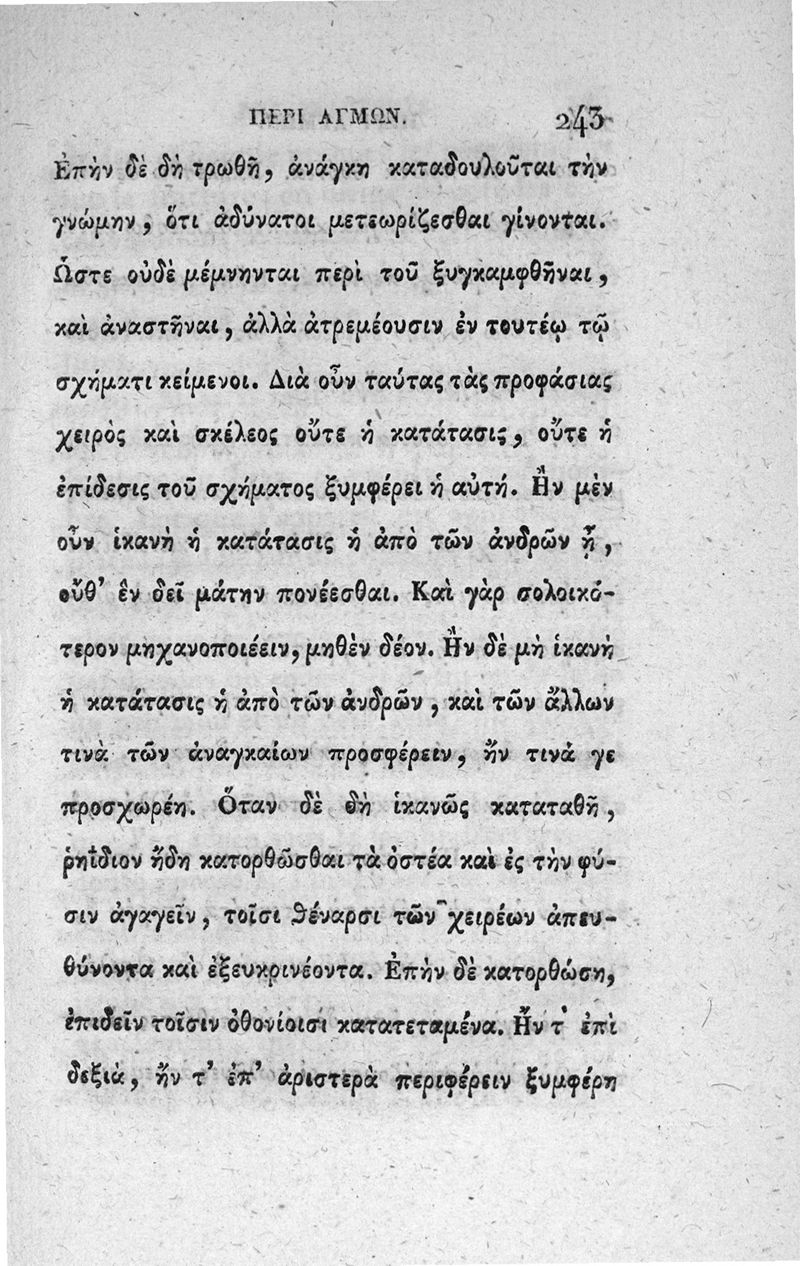 ΠΕΡΙ ΑΓΜΩΝ. 243
Ἐπὴν δὲ δὴ τρωθῇ, ἀνάγκη καταδουλοῦται τὴν
γνώμην, ὅτι ἀδύνατοι μετεωρίζεσθαι γίνονται.
Ὥστε οὐδὲ μέμνηνται περὶ τοῦ ξυγκαμφθῆναι,
καὶ ἀναστῆναι, ἀλλὰ ἀτρεμέουσιν ἐν τουτέῳ τῷ
σχήματι κείμενοι. Διὰ οὖν ταύτας τὰς προφάσιας
χειρὸς καὶ σκέλεος οὔτε ἡ κατάτασις, οὔτε ἡ
ἐπίδεσις τοῦ σχήματος ξυμφέρει ἡ αὐτή. Ἢν μὲν
οὖν ἱκανὴ ἡ κατάτασις ἡ ἀπὸ τῶν ἀνδρῶν ᾖ,
οὔθ’ ἓν δεῖ μάτην πονέεσθαι. Καὶ γὰρ σολοικό-
τερον μηχανοποιέειν, μηθὲν δέον. Ἢν δὲ μὴ ἱκανὴ
ἡ κατάτασις ἡ ἀπὸ τῶν ἀνδρῶν, καὶ τῶν ἄλλων
τινὰ τῶν ἀναγκαίων προσφέρειν, ἤν τινά γε
προσχωρέῃ. Ὅταν δὲ δὴ ἱκανῶς καταταθῇ,
ῥηΐδιον ἤδη κατορθῶσθαι τὰ ὀστέα καὶ ἐς τὴν φύ-
σιν ἀγαγεῖν, τοῖσι θέναρσι τῶν χειρέων ἀπευ-
θύνοντα καὶ ἐξευκρινέοντα. Ἐπὴν δὲ κατορθώσῃ,
ἐπιδεῖν τοῖσιν ὀθονίοισι κατατεταμένα. Ἤν τ’ ἐπὶ
δεξιὰ, ἤν τ’ ἐπ’ ἀριστερὰ περιφέρειν ξυμφέρῃ